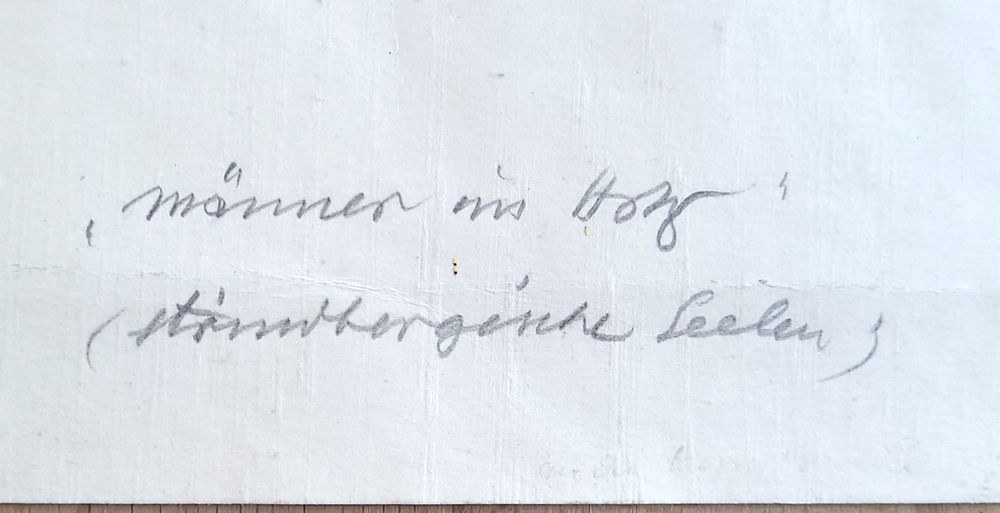 "männer im Holz"
(strindbergische Seelen)